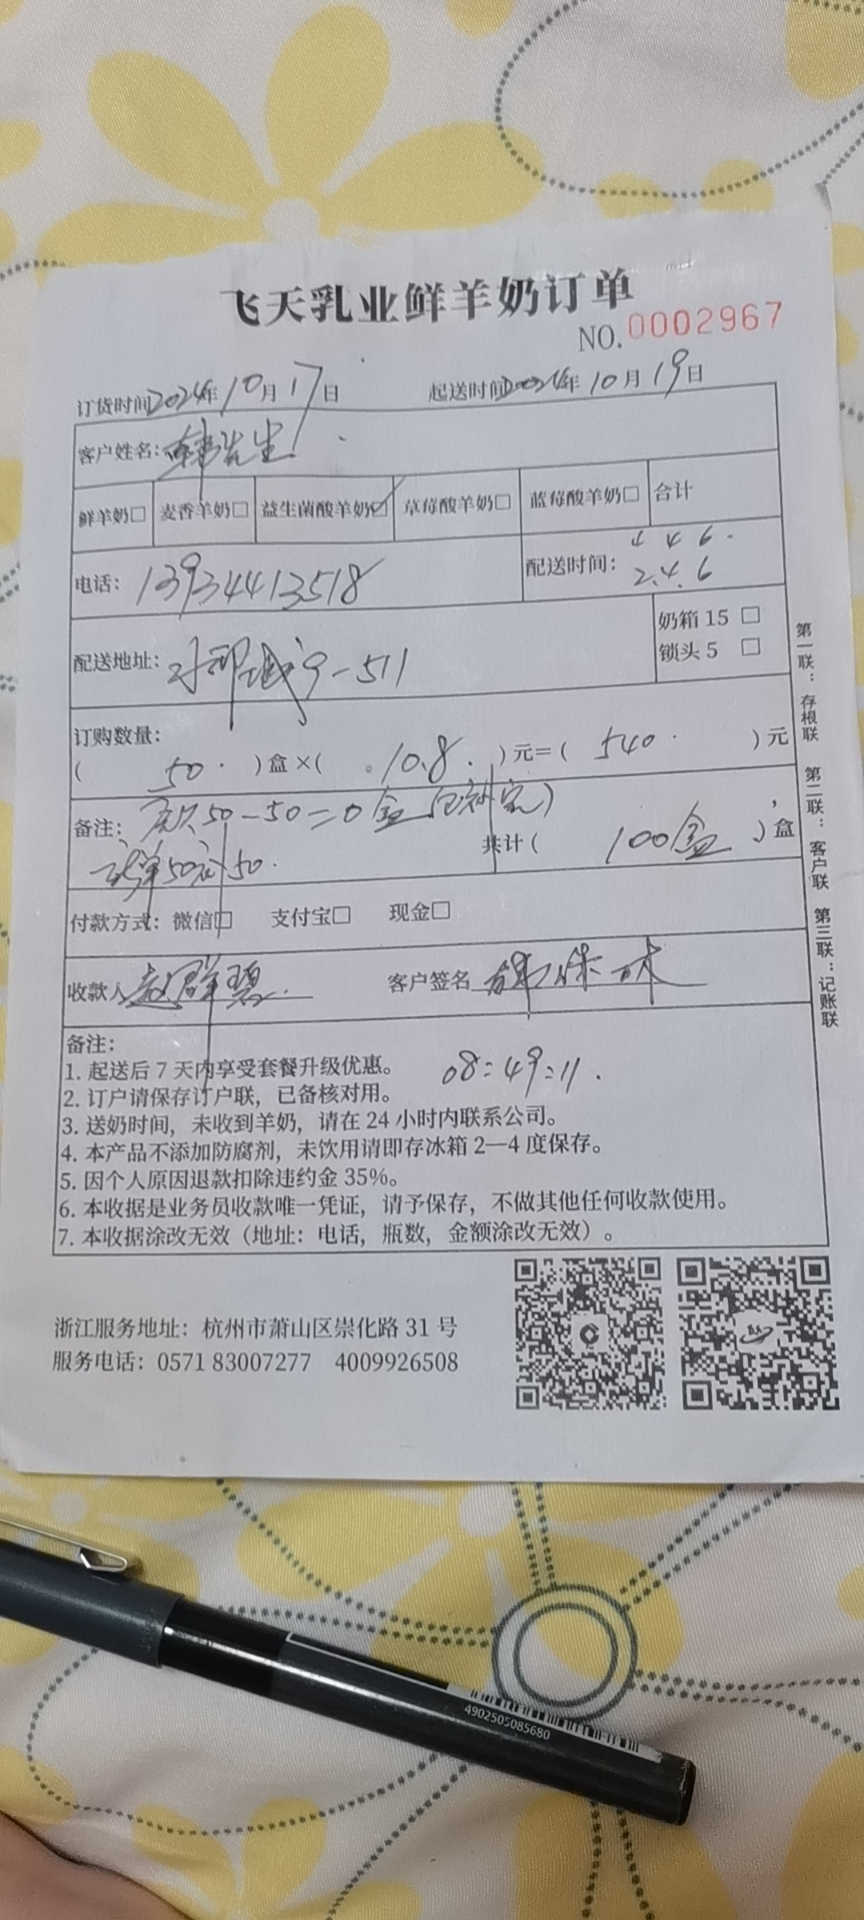 飞天乳业鲜羊奶订单
NO.0002967
订货时间2024年10月17日 起送时间2024年10月19日
客户姓名：韩先生
鲜羊奶□ 麦香羊奶□ 益生菌酸羊奶☑ 草莓酸羊奶□ 蓝莓酸羊奶□ 合计
电话：13934413518 配送时间：
4 4 6.
2.4.6
配送地址： 9-511
奶箱 15 □
锁头 5 □
订购数量：
( 50. ) 盒 ×( 10.8. ) 元＝( 540. ) 元
备注： 50-50=0盒
单50 50.
共计( 100盒 ) 盒
付款方式：微信□ 支付宝□ 现金□
收款人赵群碧. 客户签名
备注：
1. 起送后 7 天内享受套餐升级优惠。
08:49:11.
2. 订户请保存订户联，已备核对用。
3. 送奶时间，未收到羊奶，请在 24 小时内联系公司。
4. 本产品不添加防腐剂，未饮用请即存冰箱 2—4 度保存。
5. 因个人原因退款扣除违约金 35%。
6. 本收据是业务员收款唯一凭证，请予保存，不做其他任何收款使用。
7. 本收据涂改无效（地址：电话，瓶数，金额涂改无效）。
第一联：存根联 第二联：客户联 第三联：记账联
浙江服务地址：杭州市萧山区崇化路 31 号
服务电话：0571 83007277 4009926508
4902505085680